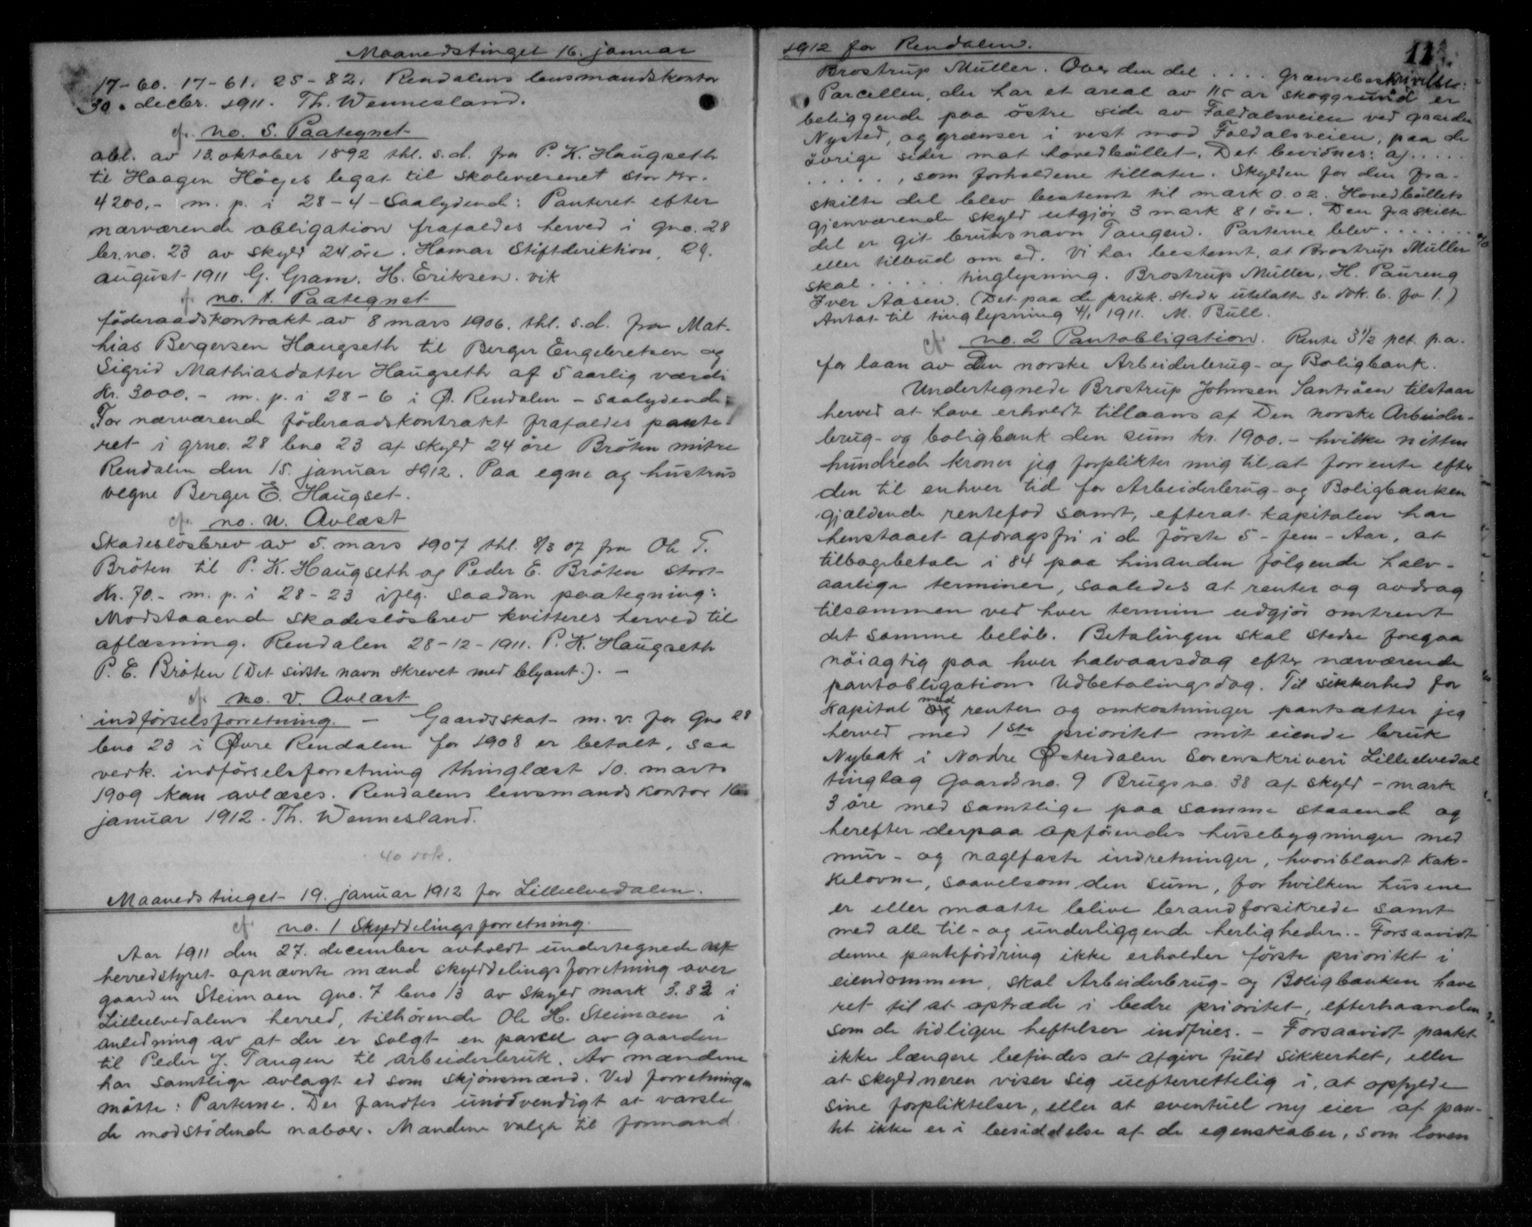 Maanedstinget 16. januar
17-60. 17-61. 25-82. Rendalens lensmandskontor
30 decbr. 1911. Th. Wennesland.
cf. no. s. Paategnet
obl. av 13. oktober 1892 thl. s.d. fra P. K. Haugseth
til Haagen Høeges legat til skolevæsenet stor kr.
4200.- m. p. i 28-4 - Saalydende: Panteret efter
nærværende obligation frafaldes herved i gno. 28
br.no. 23 av skyld 24 øre. Hamar Stiftdirektion, 29.
august 1911 G. Gram. H. Eriksen. vik
cf. no. t. Paategnet
föderaadskontrakt av 8 mars 1906. thl. s.d. fra Mat-
hias Bergersen Haugseth til Berger Engebretsen og
Sigrid Mathiasdatter Haugseth af 5 aarlig værdi
Kr. 3000.- m. p. i 28-6 i Ø. Rendalen - saalydende:
For nærværende föderaadskontrakt frafaldes pante-
ret i grno. 28 bno 23 af skyld 24 øre Bröten mitre
Rendalen den 15. januar 1912. Paa egne og hustrus
vegne Berger E. Haugset.
cf. no. u. Avlæst
Skadeslösbrev av 5. mars 1907 thl. 8/3 07 fra Ole T.
Bröten til P. K. Haugseth og Peder E. Bröten stort
Kr. 70.- m. p. i 28-23 iflg. saadan paategning:
Modstaaende skadeslösbrev kvitteres herved til
aflæsning. Rendalen 28-12-1911. P. K. Haugseth
P. E. Bröten (Det sidste navn skrevet med blyant.). -
cf. no. v. Avlæst
indförselsforretning - Gaardsskat m. v. for Gno 28
bno 23 i Øvre Rendalen for 1908 er betalt, saa
verk. indförselsforretning thinglæst 10. marts
1909 kan avlæses. Rendalens lensmandskontor 16
januar 1912. Th. Wennesland.
40 dok.
Maanedstinget 19. januar 1912 for Lilleelvedalen.
cf. no. 1 Skylddelingsforretning.
Aar 1911 den 27. december avholdt undertegnede av
herredstyret opnævnte mænd skylddelingsforretning over
gaarden Steimoen gno. 7 bno 13 av skyld mark 3.83 i
Lilleelvedalens herred, tilhörende Ole H. Steimoen i
anledning av at der er solgt en parcel av gaarden
til Peder J. Tangen til arbeiderbruk. Av mændene
har samtlige avlagt ed som skjönsmænd. Ved forretningen
mötte: Parterne. Der fandtes unödvendigt at varsle
de modstödende naboer. Mændene valgte til formand
1912 for Rendalen. 11.
Brostrup Müller. Over den del .... grænsebeskrivelse:
Parcellen, der har et areal av 115 ar skoggrund er
beliggende paa östre side av Foldalsveien ved gaarden
Nysted, og grænser i vest mod Foldalsveien, paa de
övrige sider mot hovedböllet. Det bevidnes: a) .....
....., som forholdene tillater. Skylden for den fra-
skilte del blev bestemt til mark 0.02. Hovedböllets
gjenværende skyld utgjör 3 mark 81 öre. Den fraskilte
del er git bruksnavn Tangen. Parterne blev ......
eller tilbud om ed. Vi har bestemt, at Brostrup Müller
skal ..... tinglysning. Brostrup Müller, H. Paureng
Iver Aasen. (Det paa de prikk. steder utelatte se dok. 6. for 1.)
Antat til tinglysning 4/1 1911. M. Bull.
cf. no. 2 Pantobligation. Rente 3½ pct. p.a.
for laan av Den norske Arbeiderbrug- og Boligbank.
Undertegnede Brostrup Johnsen Santröen tilstaar
herved at have erholdt tillaans af Den norske Arbeider-
brug- og boligbank den sum kr. 1900.- hvilke nitten
hundrede kroner jeg forplikter mig til at forrente efter
den til enhver tid for Arbeiderbrug- og Boligbanken
gjældende rentefod samt, efterat kapitalen har
henstaaet afdragsfri i de förste 5 - fem - Aar, at
tilbagebetale i 84 paa hinanden fölgende halv-
aarlige terminer, saaledes at renter og avdrag
tilsammen ved hver termin udgjör omtrent
det samme belöb. Betalingen skal stedse foregaa
nöiagtig paa hver halvaarsdag efter nærværende
pantobligations Udbetalingsdag. Til sikkerhed for
Kapital med renter og omkostninger pantsætter jeg
herved med 1ste prioritet mit eiende bruk
Nybak i Nordre Østerdalen Sorenskriveri Lilleelvedal
tinglag Gaardsno. 9 Brugsno. 38 af skyld - mark
3 öre med samtlige paa samme staaende og
herefter derpaa opförendes husebygninger med
mur- og naglfaste indretninger, hvoriblandt Kak-
kelovne, saavelsom den sum, for hvilken husene
er eller maatte blive brandforsikrede samt
med alle til- og underliggende herligheder. Forsaavidt
denne pantefordring ikke erholder förste prioritet i
eiendommen, skal Arbeiderbrug- og Boligbanken have
ret til at optræde i bedre prioritet, efterhaanden
som de tidligere heftelser indfries. - Forsaavidt pantet
ikke længere befindes at afgive fuld sikkerhet, eller
at skyldneren viser sig uefterrettelig i at opfylde
sine forpliktelser, eller at eventuel ny eier af pan-
tet ikke er i besiddelse af de egenskaber, som loven